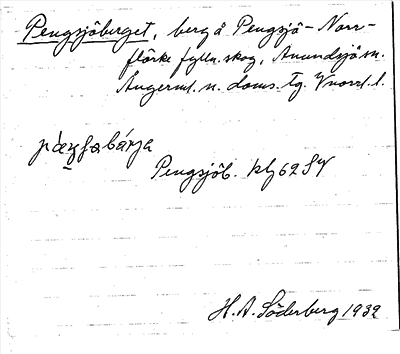 Pengsjöberget, berg å Pengsjö-Norr-
flärke fylln. skog, Anundsjö sn.
Ångerml. n. doms. tg. Vnorrl. l.
Pengsjöb. kbg 62 SV
H. A. Söderberg 1932